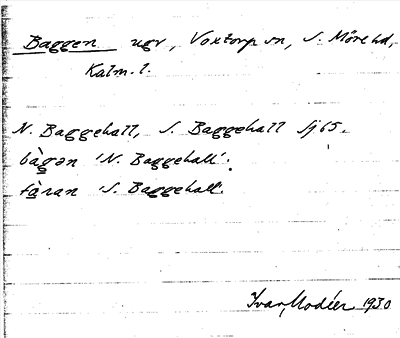 Baggen ugv, Voxtorp sn, S. Möre hd,
Kalm. l.
N. Baggehall, S. Baggehall Sj 65.
bàgən 'N. Baggehall'.
tàran 'S. Baggehall'.
Ivar Modéer 1930